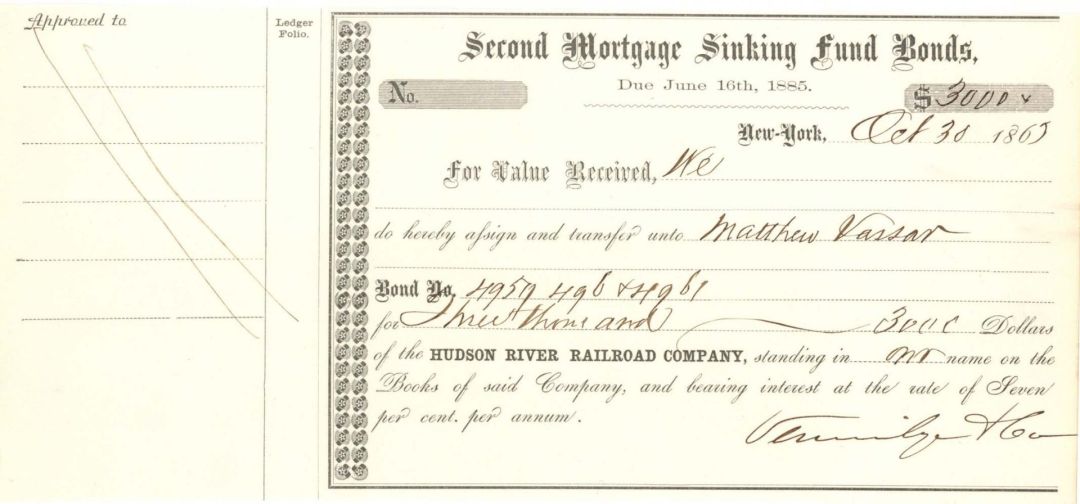 Approved to
Ledger Folio.
Second Mortgage Sinking Fund Bonds,
Due June 16th, 1885.
No.
$ 3000 x
New-York, Oct 30 1865
For Value Received, We
do hereby assign and transfer unto Matthew Vassar
Bond No. 4959 496 & 4961
for Three thousand 3000 Dollars
of the HUDSON RIVER RAILROAD COMPANY, standing in our name on the
Books of said Company, and bearing interest at the rate of Seven
per cent. per annum.
Vermilye & Co